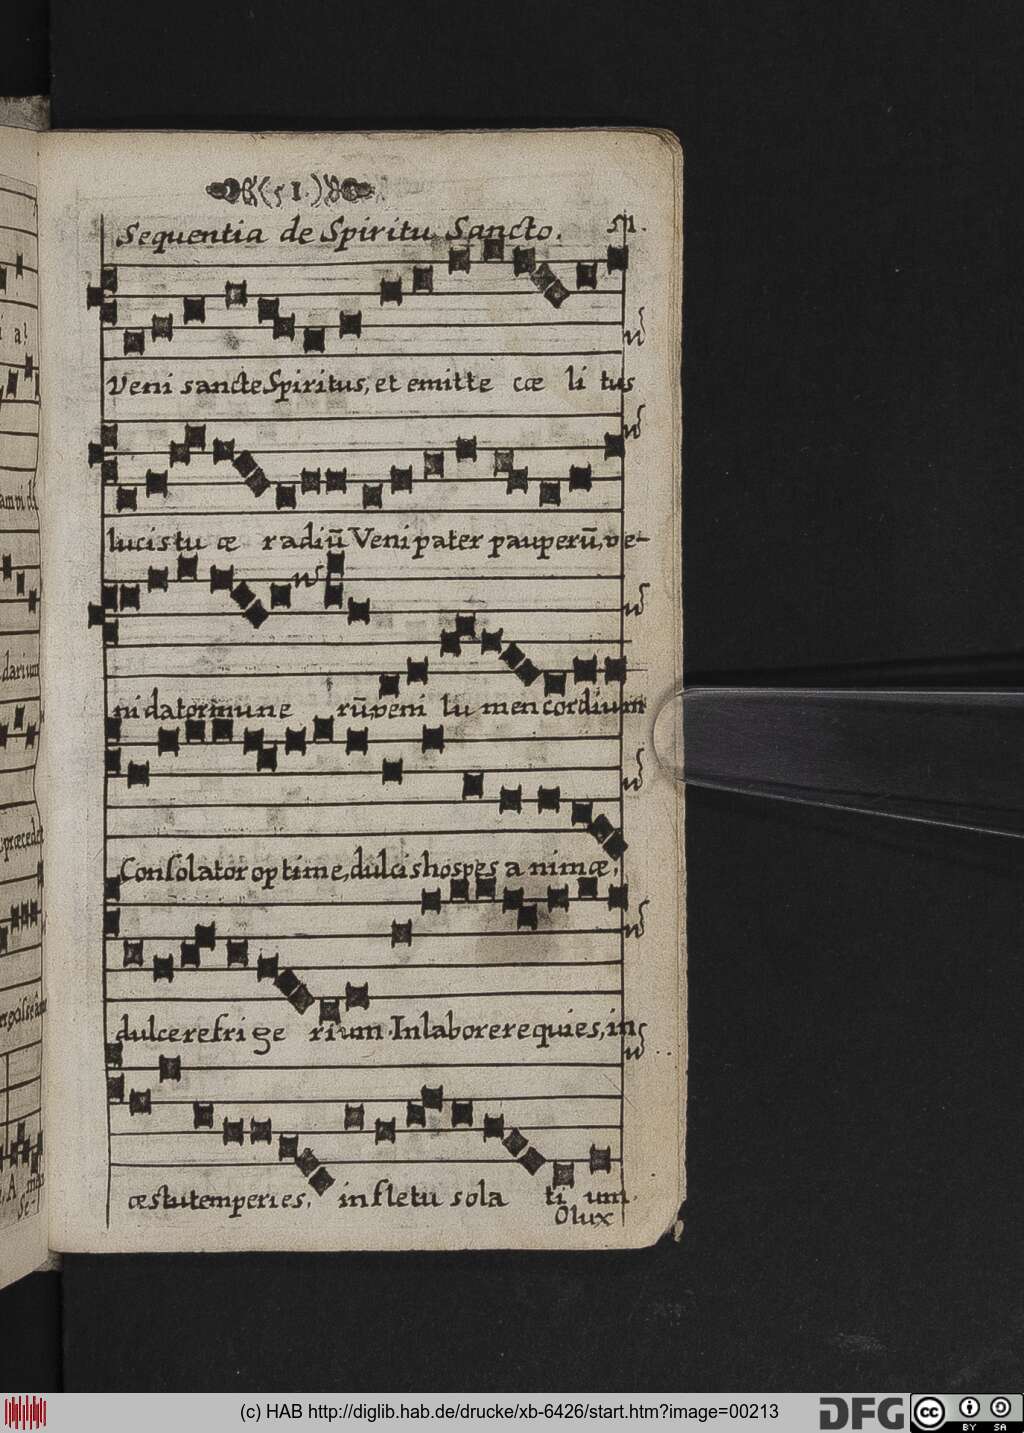 (51.)
Sequentia de Spiritu Sancto.
Veni sancte Spiritus, et emitte cœ li tus
lucis tu œ radiū Veni pater pauperū, ve-
ni dator mune rū, veni lu men cordium
Consolator optime, dulcis hospes a nimœ,
dulce refri ge rium. In labore requies, in
œstu temperies, in fletu sola ti um.
O lux
(c) HAB http://diglib.hab.de/drucke/xb-6426/start.htm?image=00213
DFG
cc
BY SA